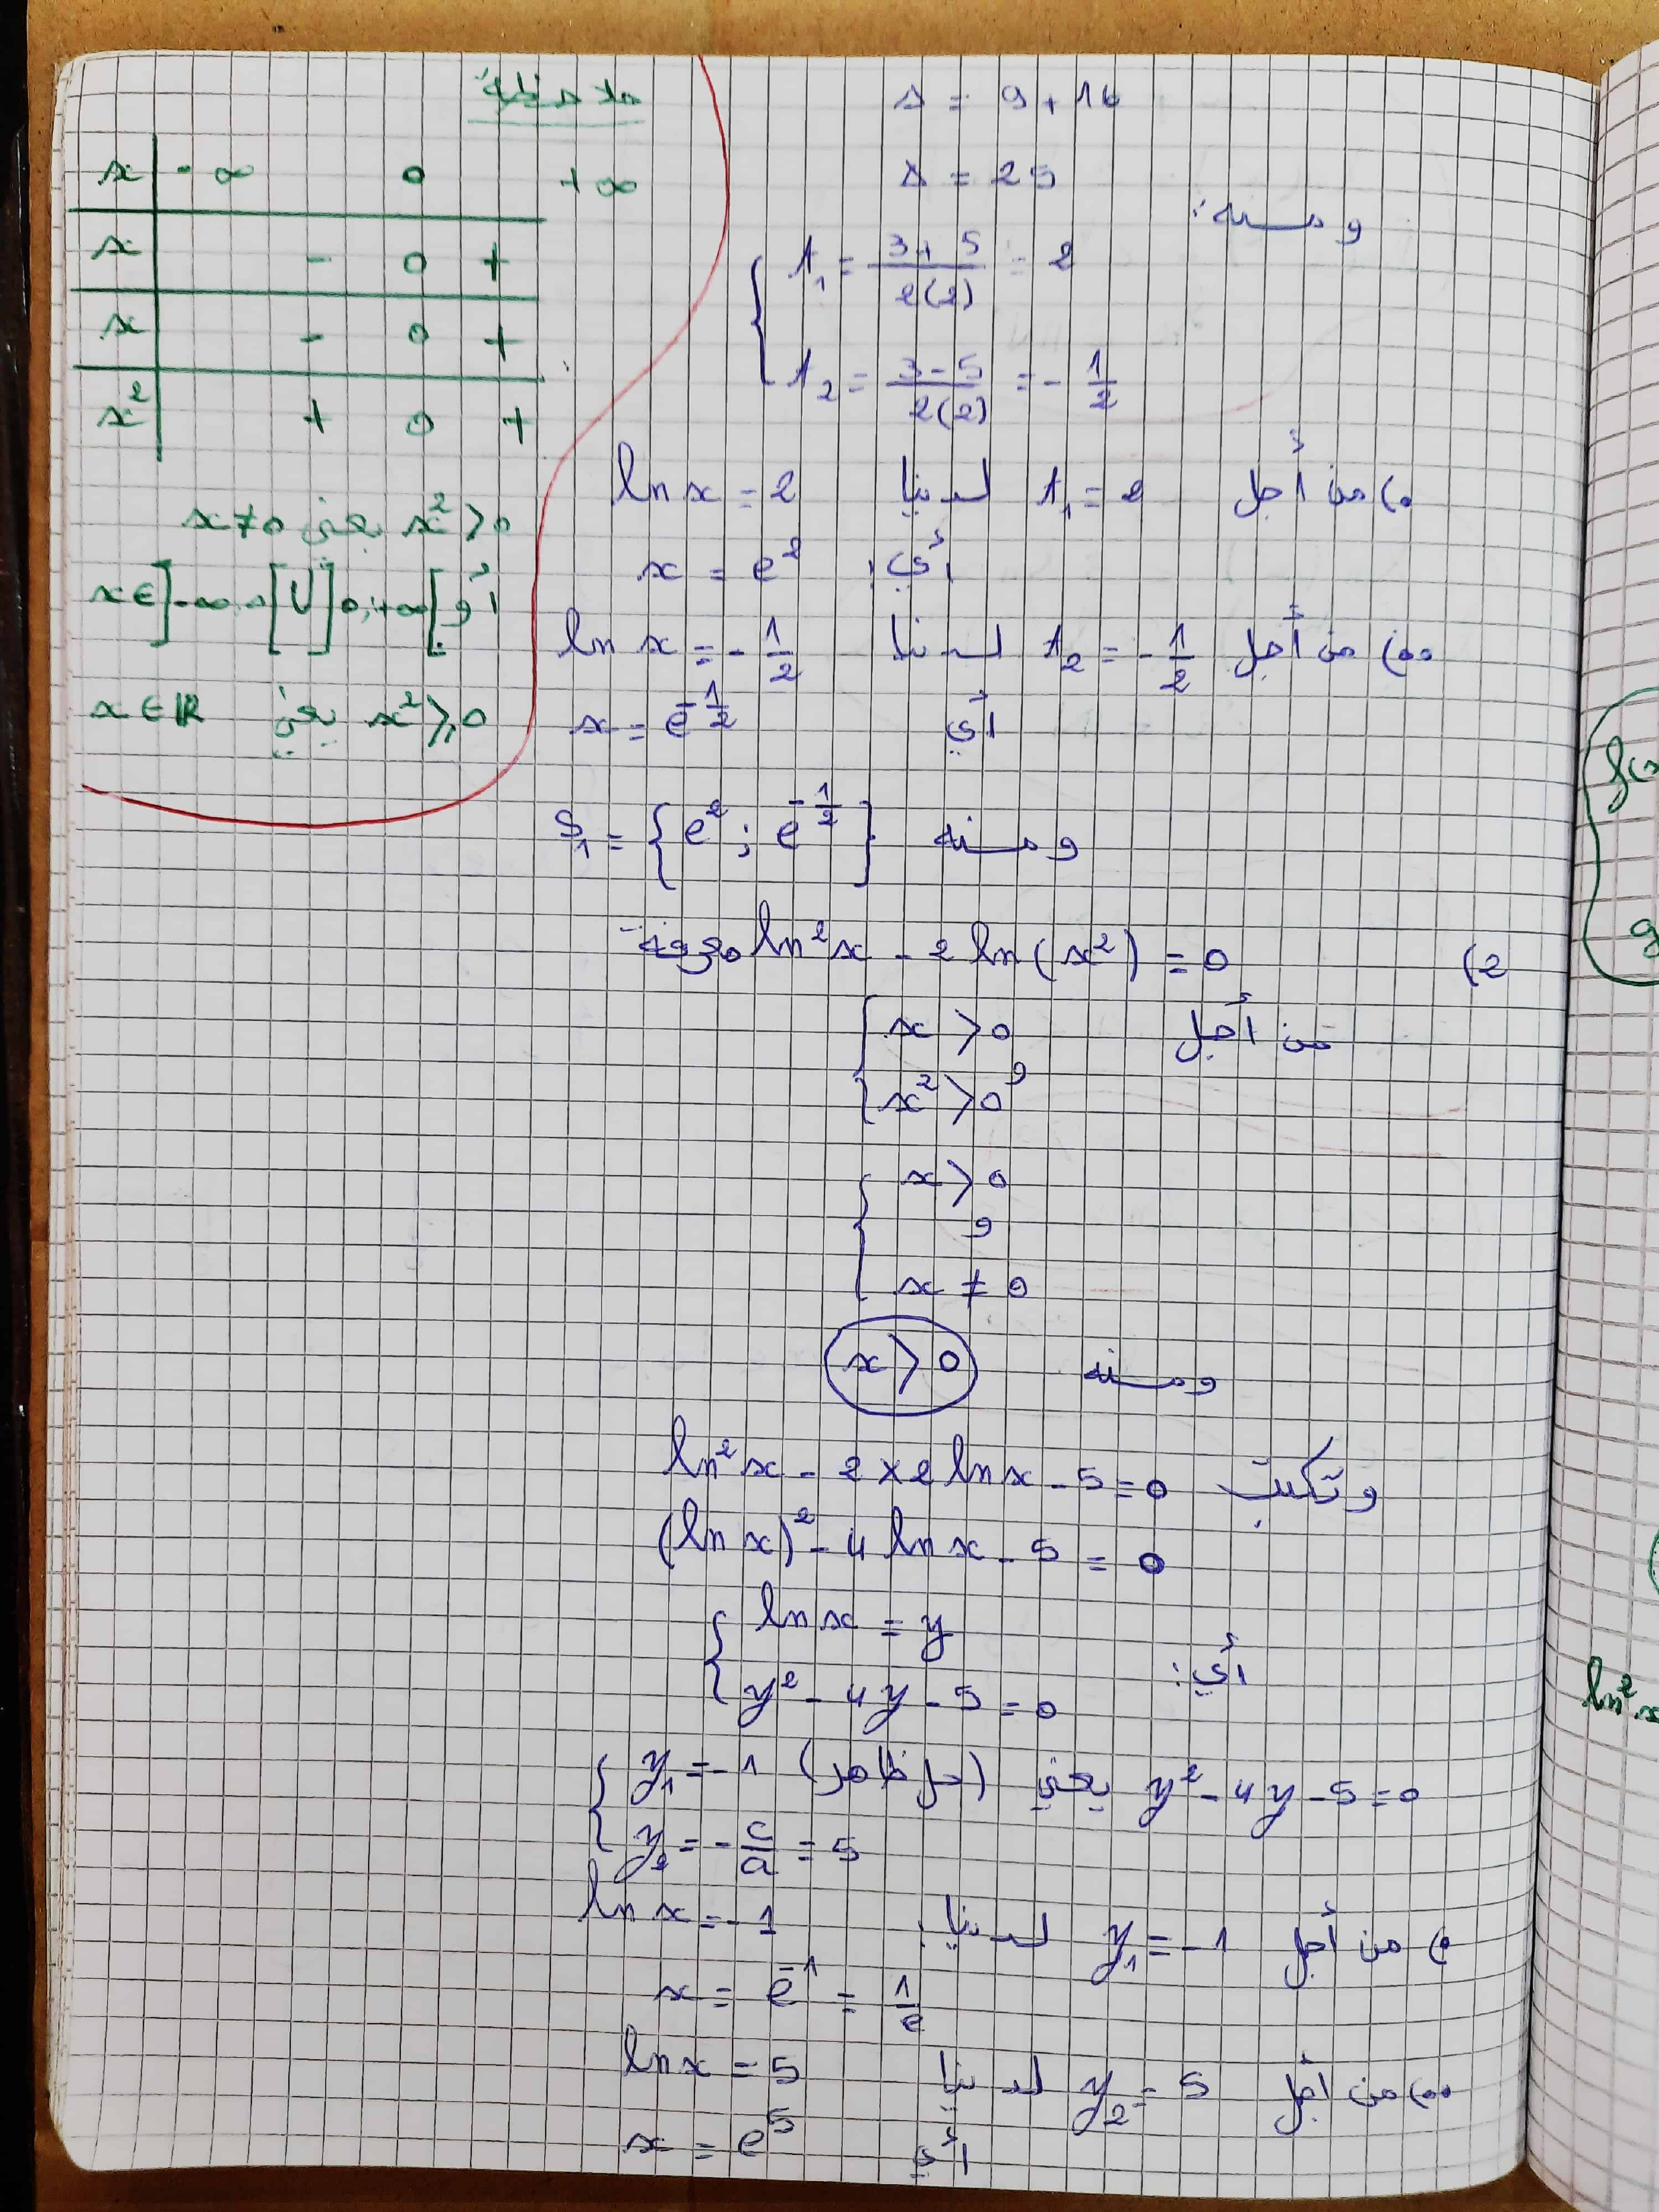 ملاحظة:
x | -∞ 0 +∞
x | - 0 +
x | - 0 +
x² | + 0 +
x² > 0 يعني x ≠ 0
أو x ∈ ]-∞, 0[ U ]0; +∞[
x² ≥ 0 يعني x ∈ ℝ
Δ = 9 + 16
Δ = 25
ومنه:
t₁ = (3 + 5)/(2(2)) = 2
t₂ = (3 - 5)/(2(2)) = - 1/2
•) من أجل t₁ = 2 لدينا ln x = 2
أي: x = e²
••) من أجل t₂ = - 1/2 لدينا ln x = - 1/2
أي x = e^(-1/2)
ومنه S₁ = { e² ; e^(-1/2) }
2) ln²x - 2 ln(x²) = 0 معرفة
من أجل { x > 0
و
x² > 0
{ x > 0
و
x ≠ 0
ومنه x > 0
وتكتب ln²x - 2 × 2 ln x - 5 = 0
(ln x)² - 4 ln x - 5 = 0
أي: { ln x = y
y² - 4y - 5 = 0
y² - 4y - 5 = 0 يعني { y₁ = - 1 (حل ظاهر)
y₂ = - c/a = 5
•) من أجل y₁ = - 1 لدينا: ln x = - 1
x = e⁻¹ = 1/e
••) من أجل y₂ = 5 لدينا ln x = 5
أي x = e⁵
f(x
g
ln²x